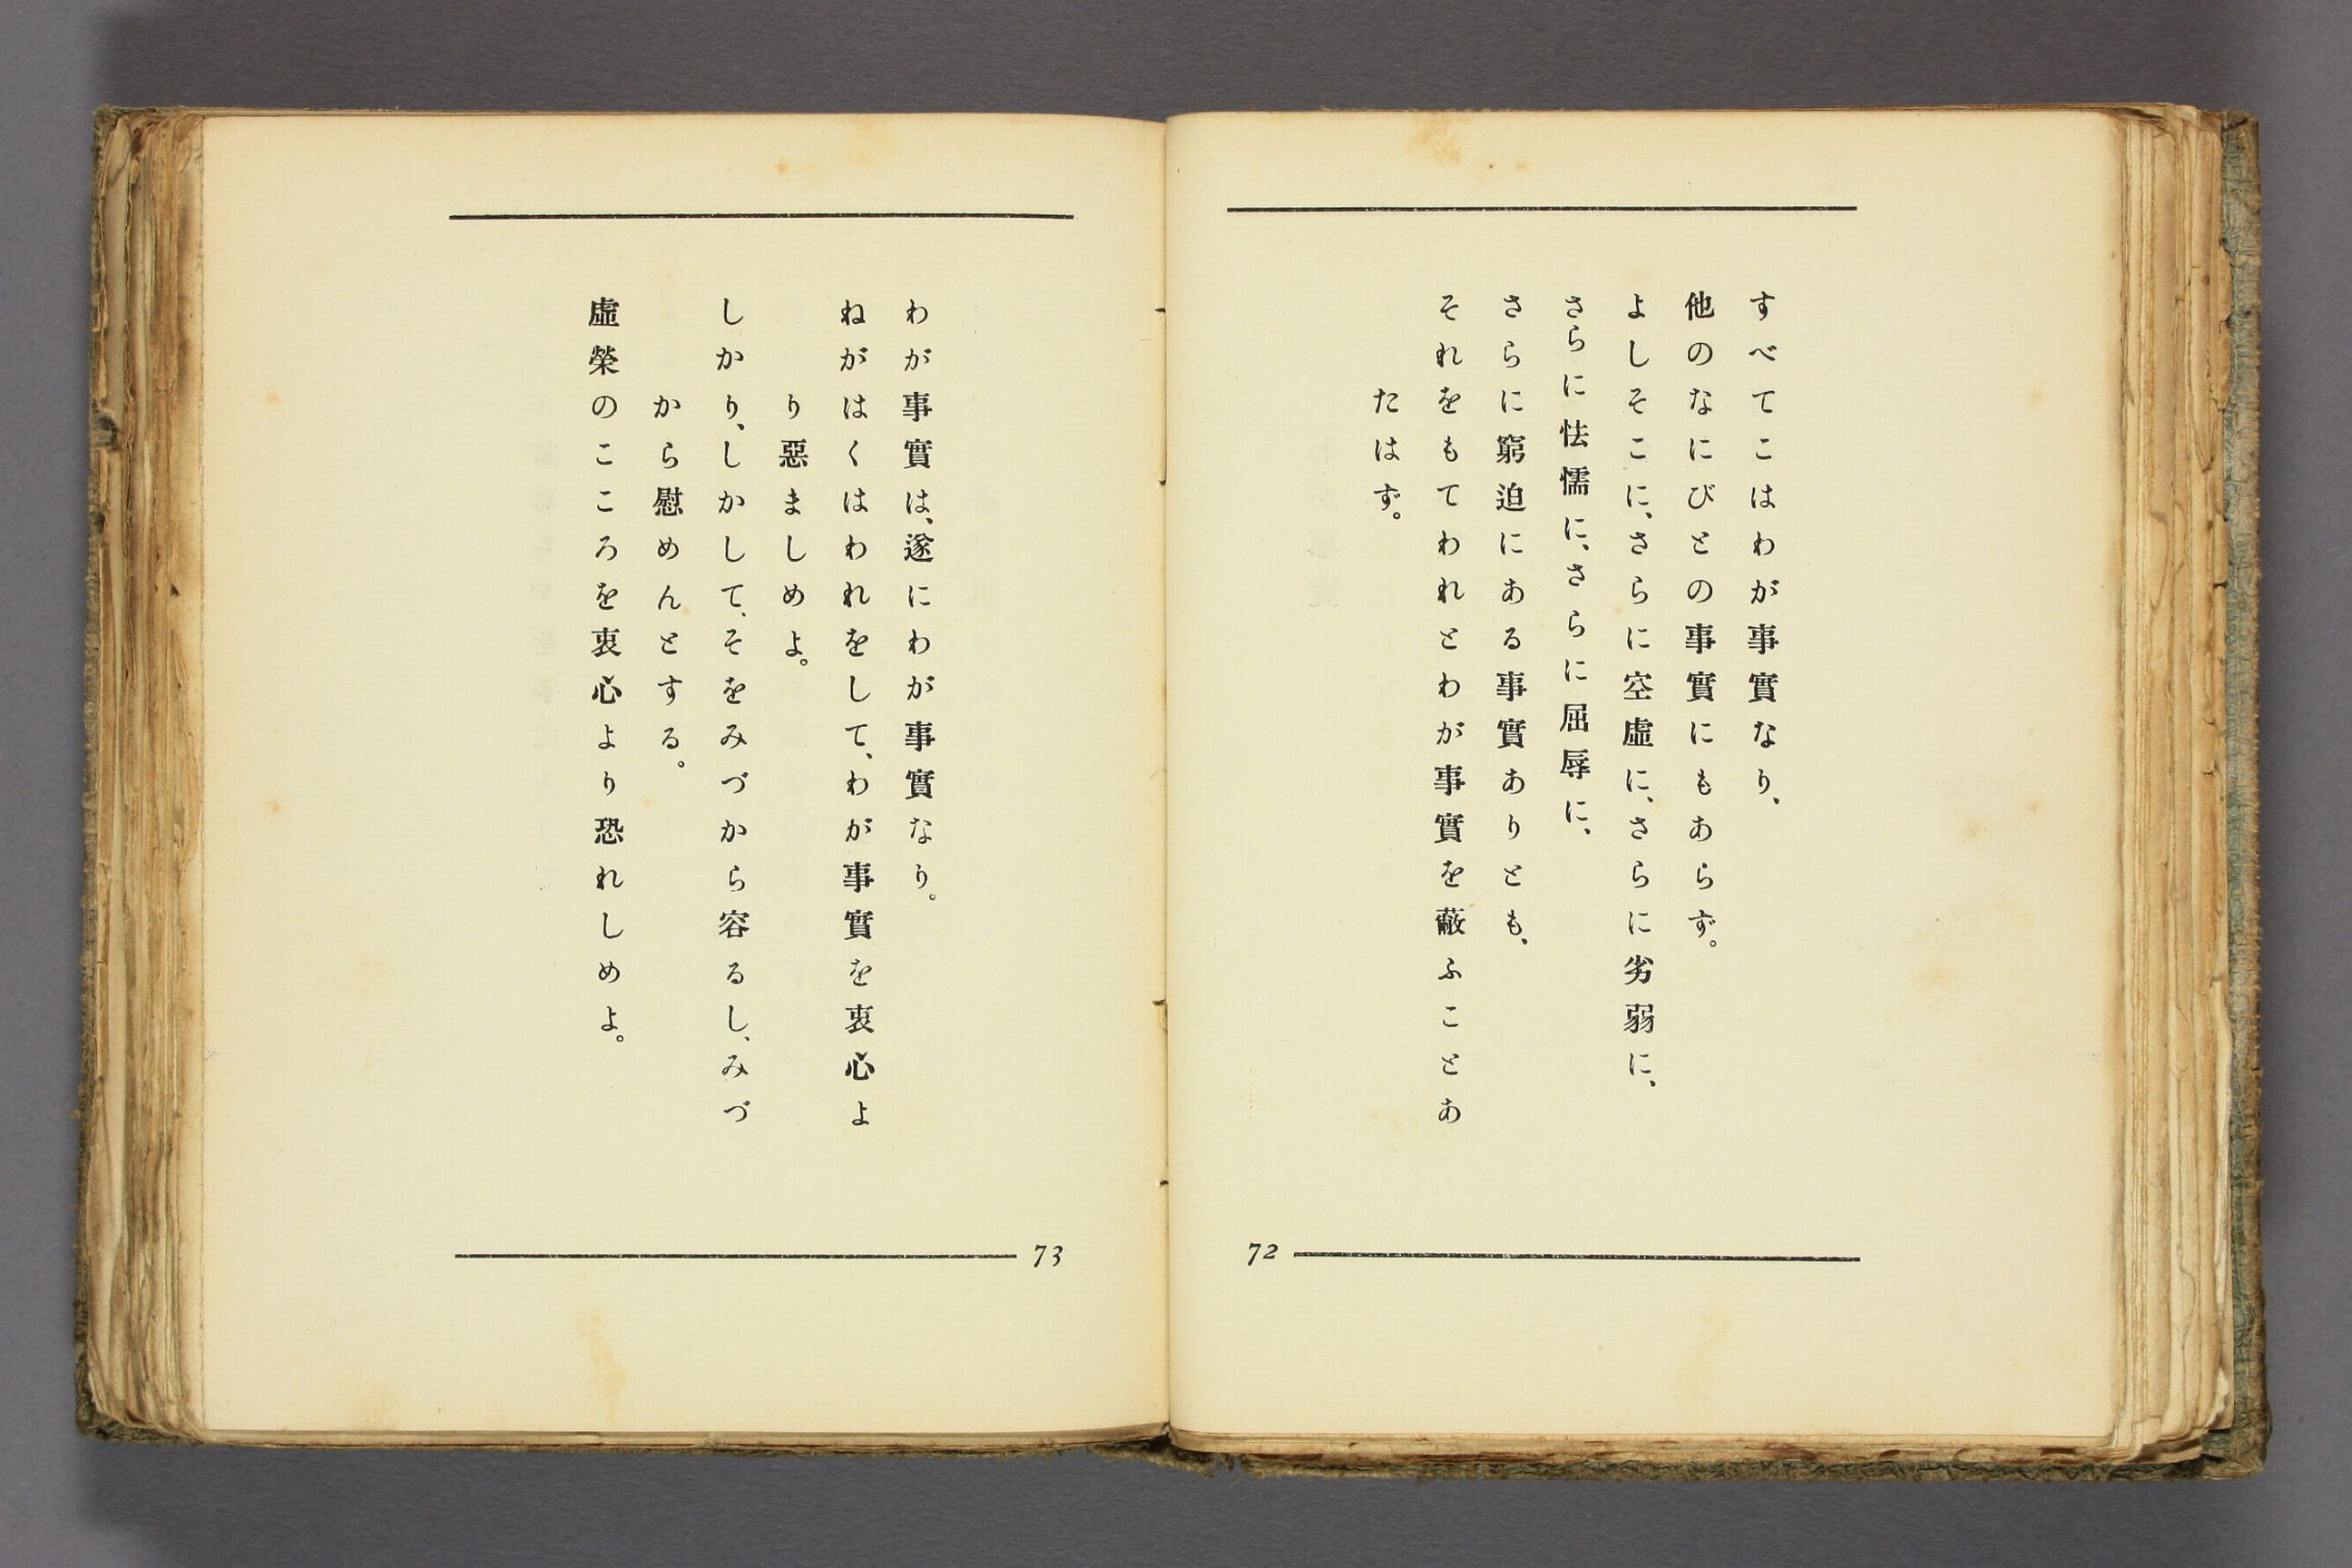 すべてこはわが事實なり、
他のなにびとの事實にもあらず。
よしそこに、さらに空虛に、さらに劣弱に、
さらに怯懦に、さらに屈辱に、
さらに窮迫にある事實ありとも、
それをもてわれとわが事實を蔽ふことあ
たはず。
72
わが事實は、遂にわが事實なり。
ねがはくはわれをして、わが事實を衷心よ
り惡ましめよ。
しかり、しかして、そをみづから容るし、みづ
から慰めんとする。
虛榮のこころを衷心より恐れしめよ。
73